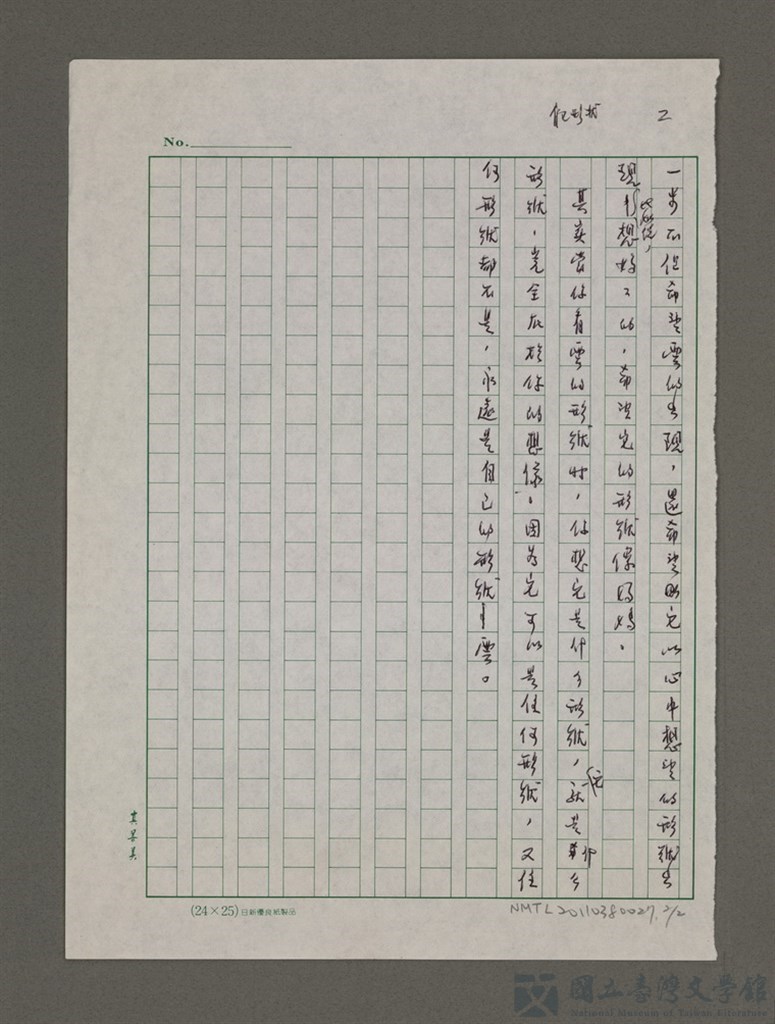 2
No.
一步不但希望雲的出現,還希望照它以心中想望的形狀出
現。比如說,想媽媽的,希望它的形狀像媽媽。
其實當你看雲的形狀時,你想它是什么形狀,它就是什么
形狀,完全在於你的想像。因為它可以是任何形狀,又任
何形狀都不是,永遠是自己的形狀—雲。
(24×25)日新優良紙製品
NMTL20110380027.2/2
國立臺灣文學館
National Museum of Taiwan Literature